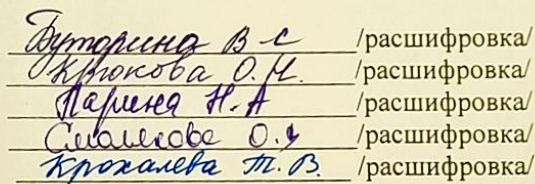 Буторина В С /расшифровка/
Крюкова О.Н. /расшифровка/
Ларина Н.А /расшифровка/
О. /расшифровка/
Крохалева Т.В. /расшифровка/